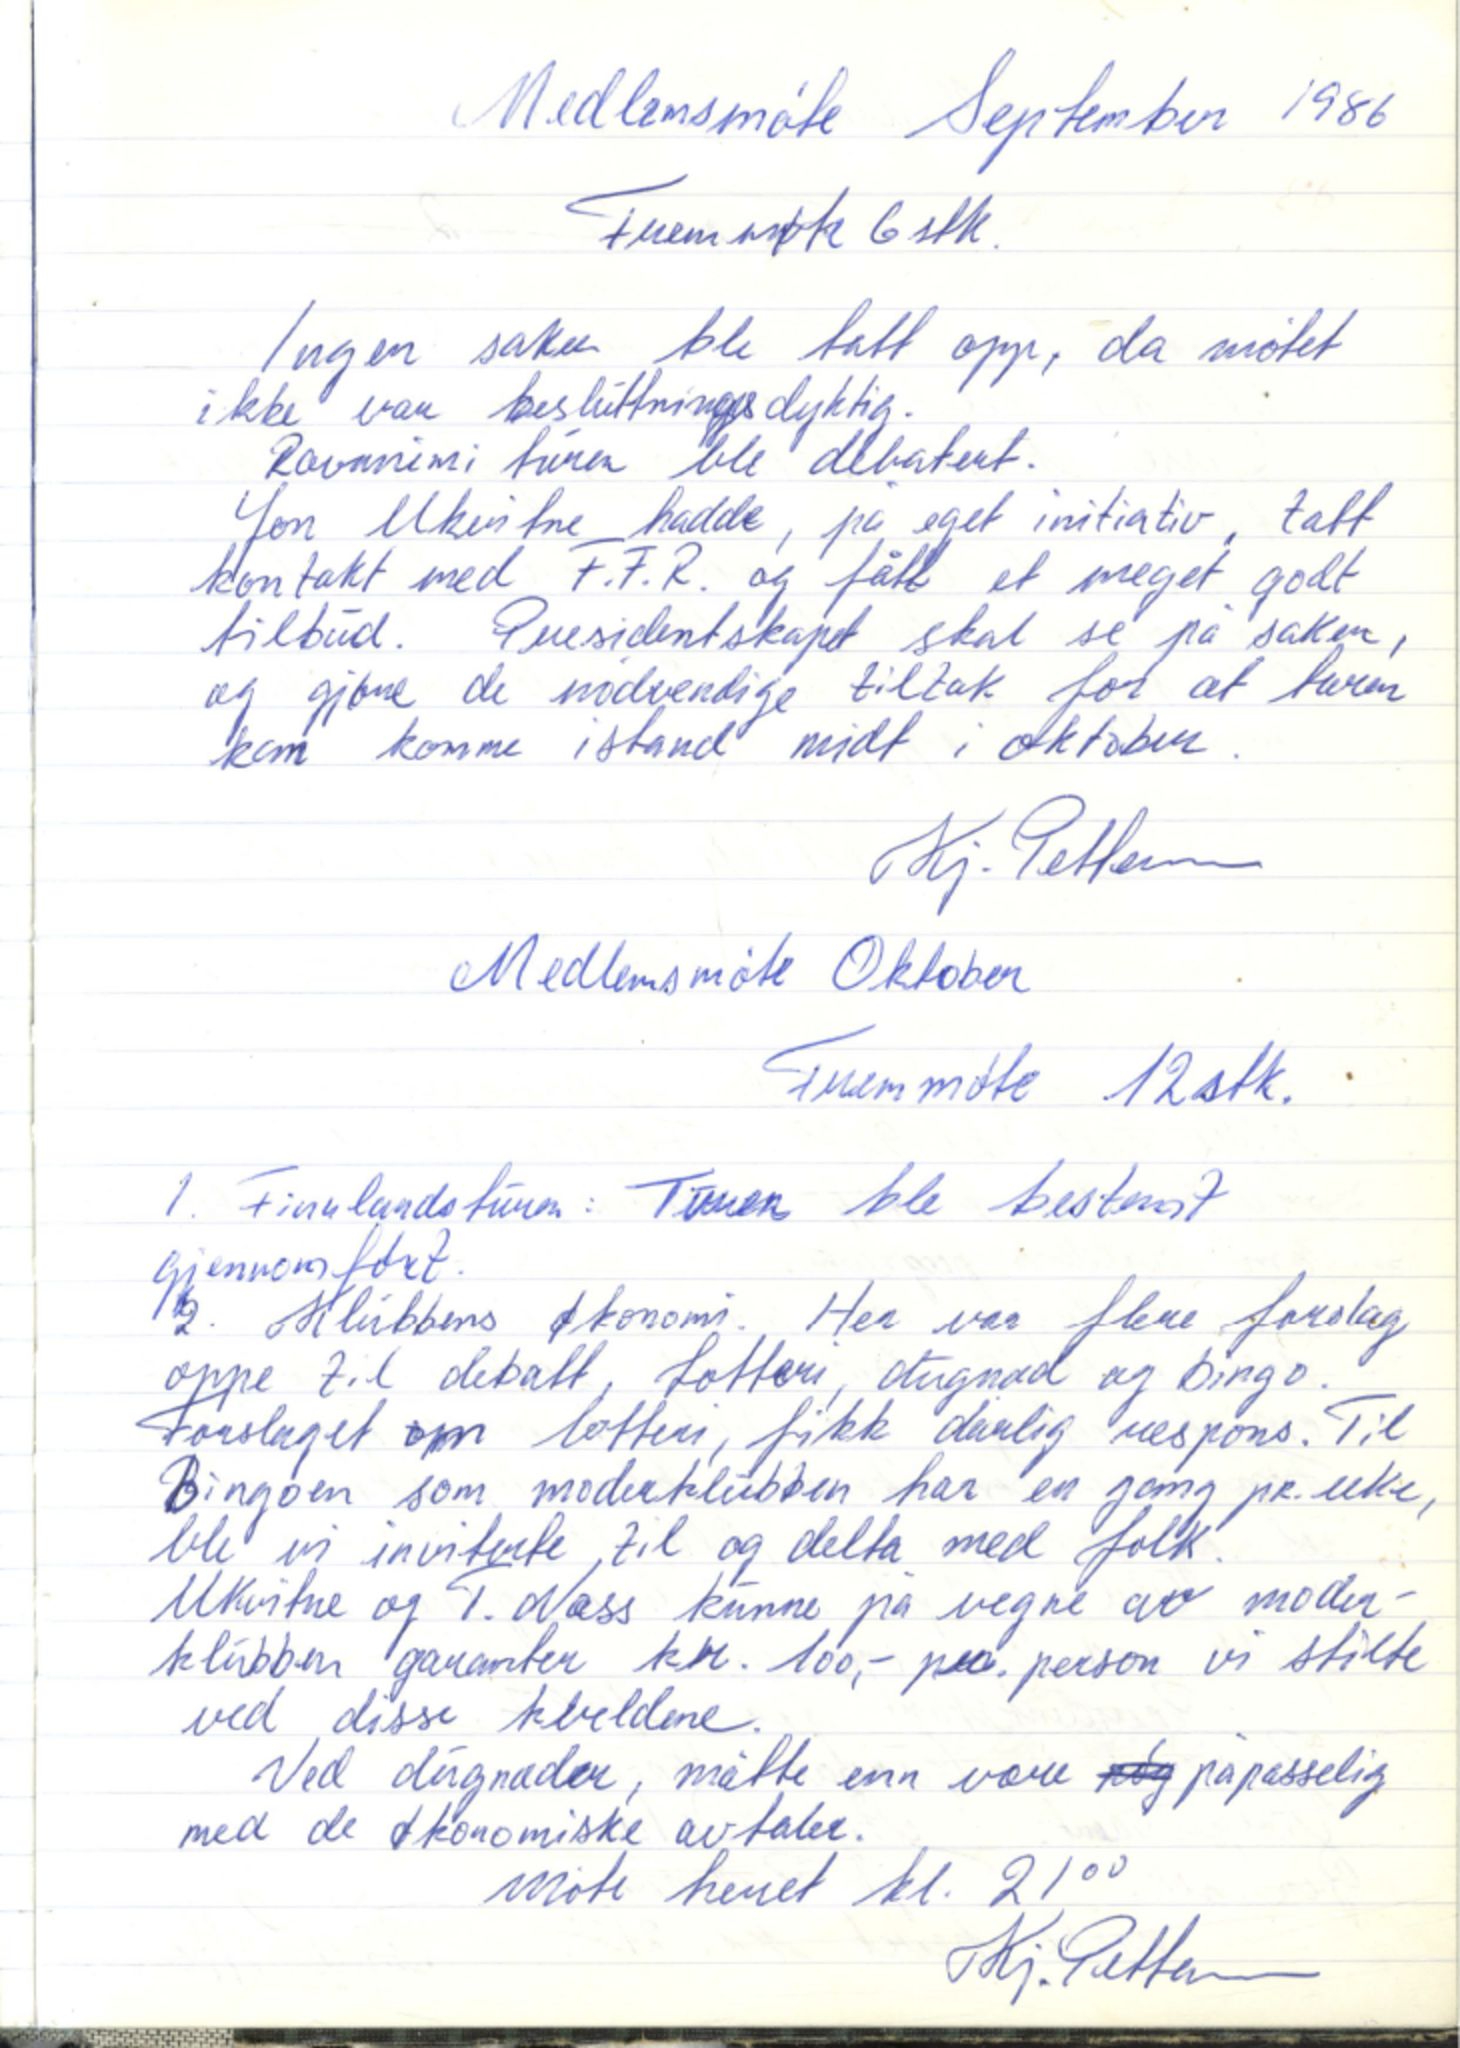 Medlemsmöte September 1986
Fremmøte 6 stk.
Ingen saker ble tatt opp, da mötet
ikke var beslutningsdyktig.
Rovaniemi turen ble debatert.
Jon Ukvitne hadde, på eget initiativ, tatt
kontakt med F.F.R. og fått et meget godt
tilbud. Presidentskapet skal se på saken,
og gjøre de nödvendige tiltak for at turen
kan komme istand midt i oktober.
Kj. Petter
Medlemsmöte Oktober
Fremmöte 12 stk.
1. Finnlandsturen: Turen ble bestemt
gjennomfört.
2. Klubbens økonomi. Her var flere forslag
oppe til debatt, Lotteri, dugnad og bingo.
Forslaget om lotteri, fikk dårlig respons. Til
Bingoen som moderklubben har en gang pr. uke,
ble vi inviterte til og delta med folk.
Ukvitne og T. Næss kunne på vegne av moder-
klubben garanter kr. 100,- pr. person vi stilte
ved disse kveldene.
Ved dugnader, måtte enn være påpasselig
med de økonomiske avtaler.
Möte hevet kl. 21⁰⁰
Kj. Petter